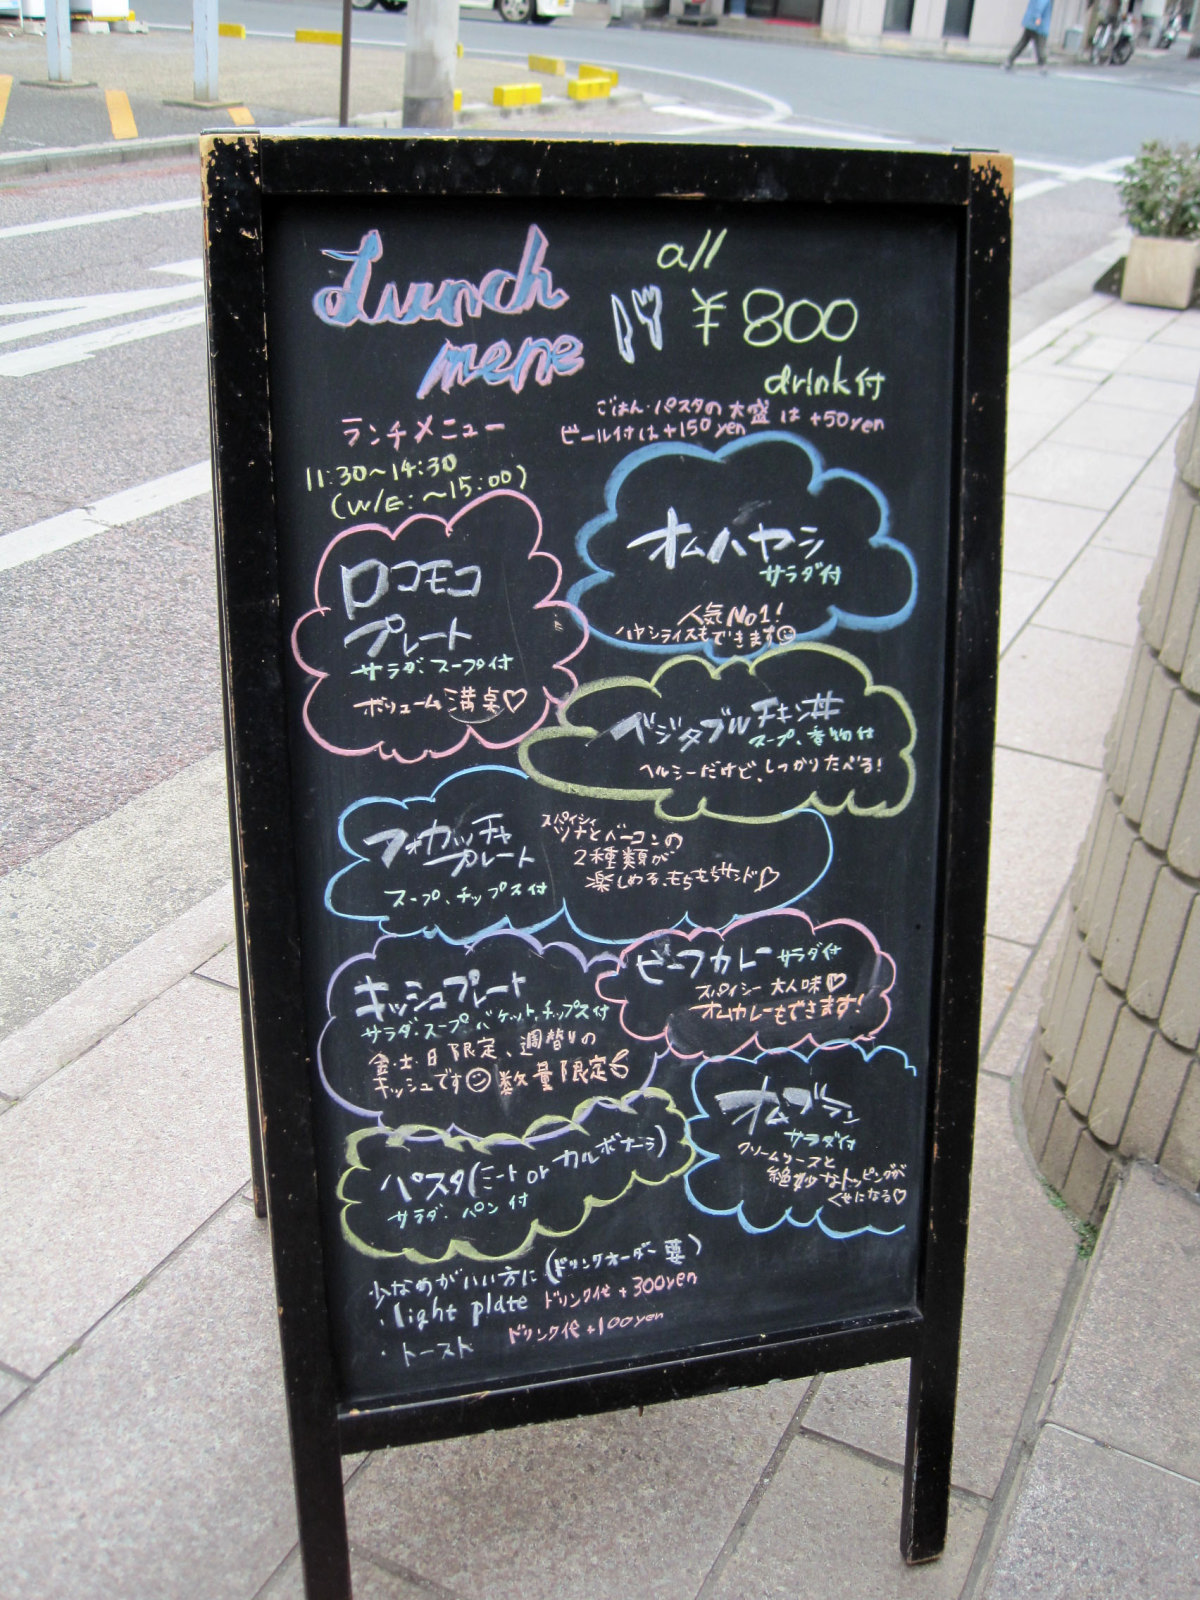 Lunch
mene
all
¥800
drink付
ごはん・パスタの大盛は+50yen
ビール付は+150yen
ランチメニュー
11:30〜14:30
(W/E:〜15:00)
ロコモコ
プレート
サラダ、スープ付
ボリューム満点♡
オムハヤシ
サラダ付
人気No1!
ハヤシライスもできます☺
ベジタブルチキン丼
スープ、香物付
ヘルシーだけど、しっかりたべる!
フォカッチャ
プレート
スープ、チップス付
スパイシィ
ツナとベーコンの
2種類が
楽しめる、もちもちサンド♡
キッシュプレート
サラダ・スープ、バケット、チップス付
金・土・日限定、週替りの
キッシュです☺数量限定
ビーフカレー サラダ付
スパイシー 大人味♡
オムカレーもできます!
オムブラン
サラダ付
クリームソースと
絶妙なトッピングが
くせになる♡
パスタ(ミート or カルボナーラ)
サラダ、パン付
少なめがいい方に(ドリンクオーダー要)
・light plate ドリンク代+300yen
・トースト ドリンク代+100yen